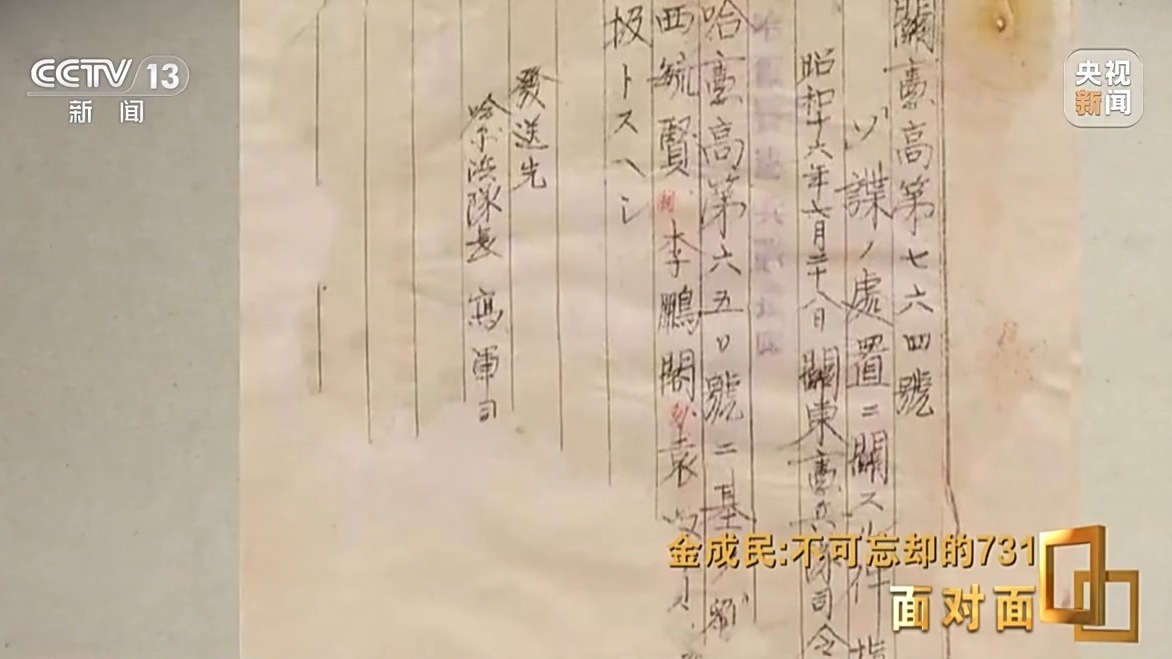 CCTV 13
新闻
央视
新闻
關憲高第七六四號
ソ諜ノ處置ニ關スル件 指
昭和十六年六月二十八日關東憲兵隊司令
哈憲高第六五〇號ニ基
西毓賢 李鵬閣 袁
扱トスヘシ
發送先
哈尔浜隊長 寫 軍司
金成民:不可忘却的731
面对面